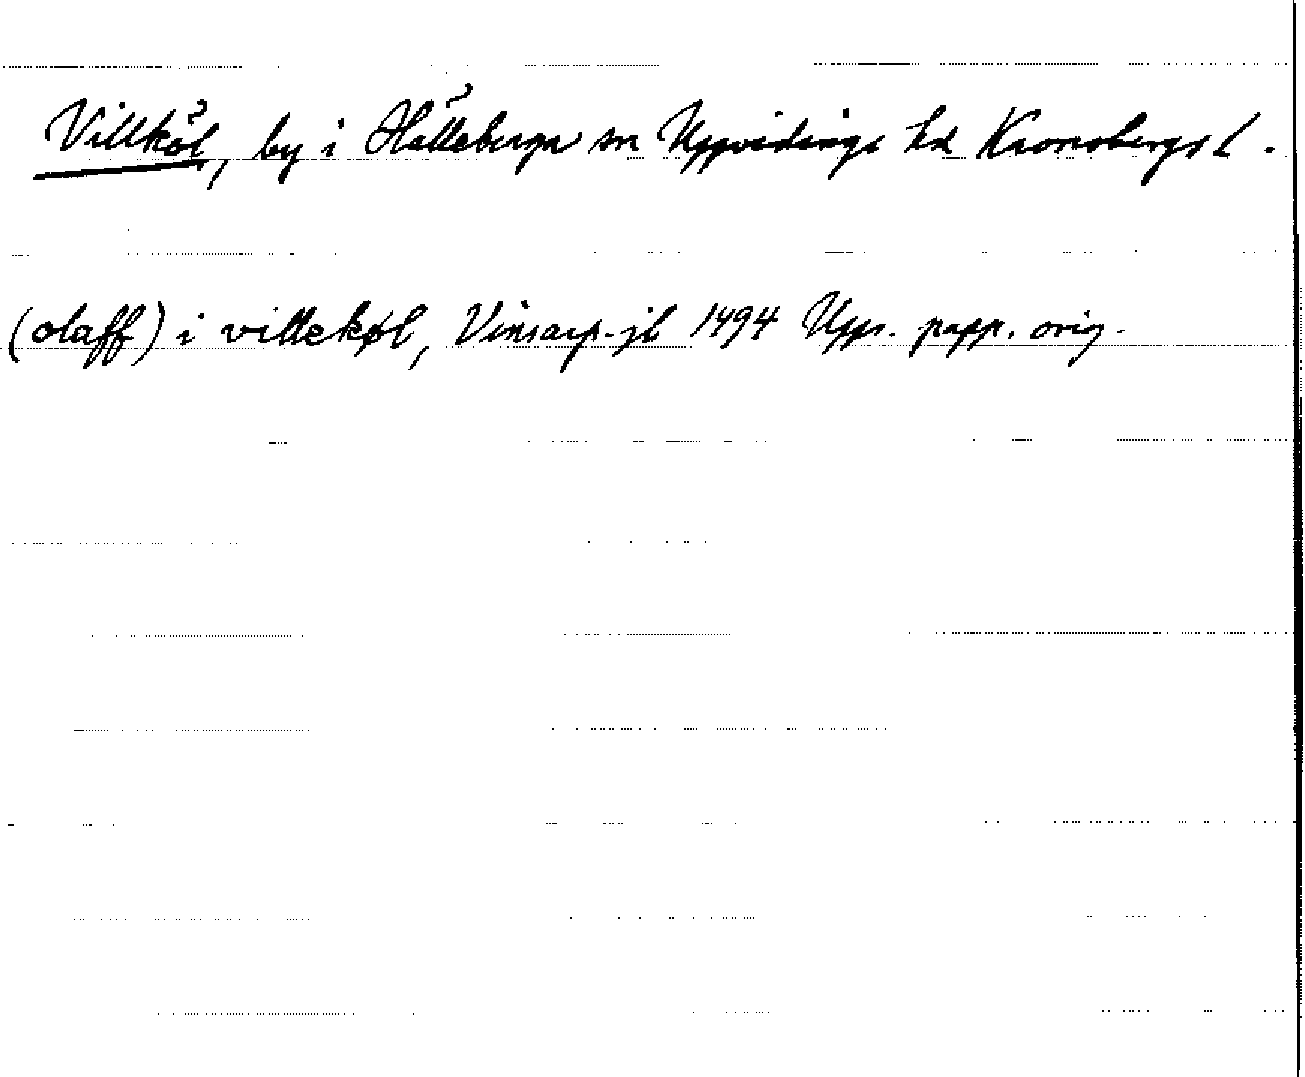 Villköl, by i Hälleberga sn Uppvidinge hd Kronobergs l.
(olaff) i villekøl, Vinsarp-jb 1494 Upps. papp. orig.